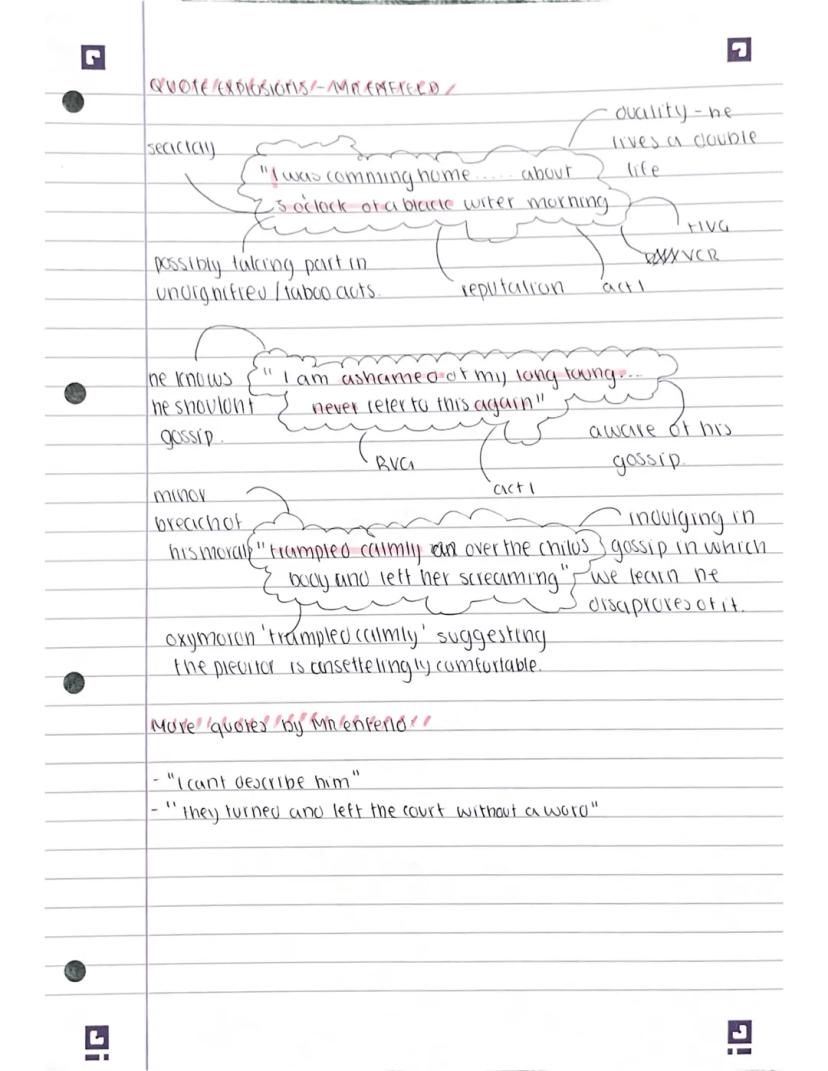 QUOTE EXPLOSIONS - MR ENFIELD
duality - he
lives a double
life
secrecy
"I was comming home ..... about
3 o'clock of a black winter morning
+IVG
VCR
possibly taking part in
undignified / taboo acts.
reputation
act 1
he knows
he shouldnt
gossip.
"I am ashamed of my long toung...
never refer to this again"
aware of his
gossip.
RVG
act 1
minor
breach of
his moral
"trampled calmly over the childs
body and left her screaming"
indulging in
gossip in which
we learn he
disaproves of it.
oxymoron 'trampled calmly' suggesting
the preditor is unsettelingly comfortable.
More quotes by Mr enfeild
- "I cant describe him"
- "they turned and left the court without a word"